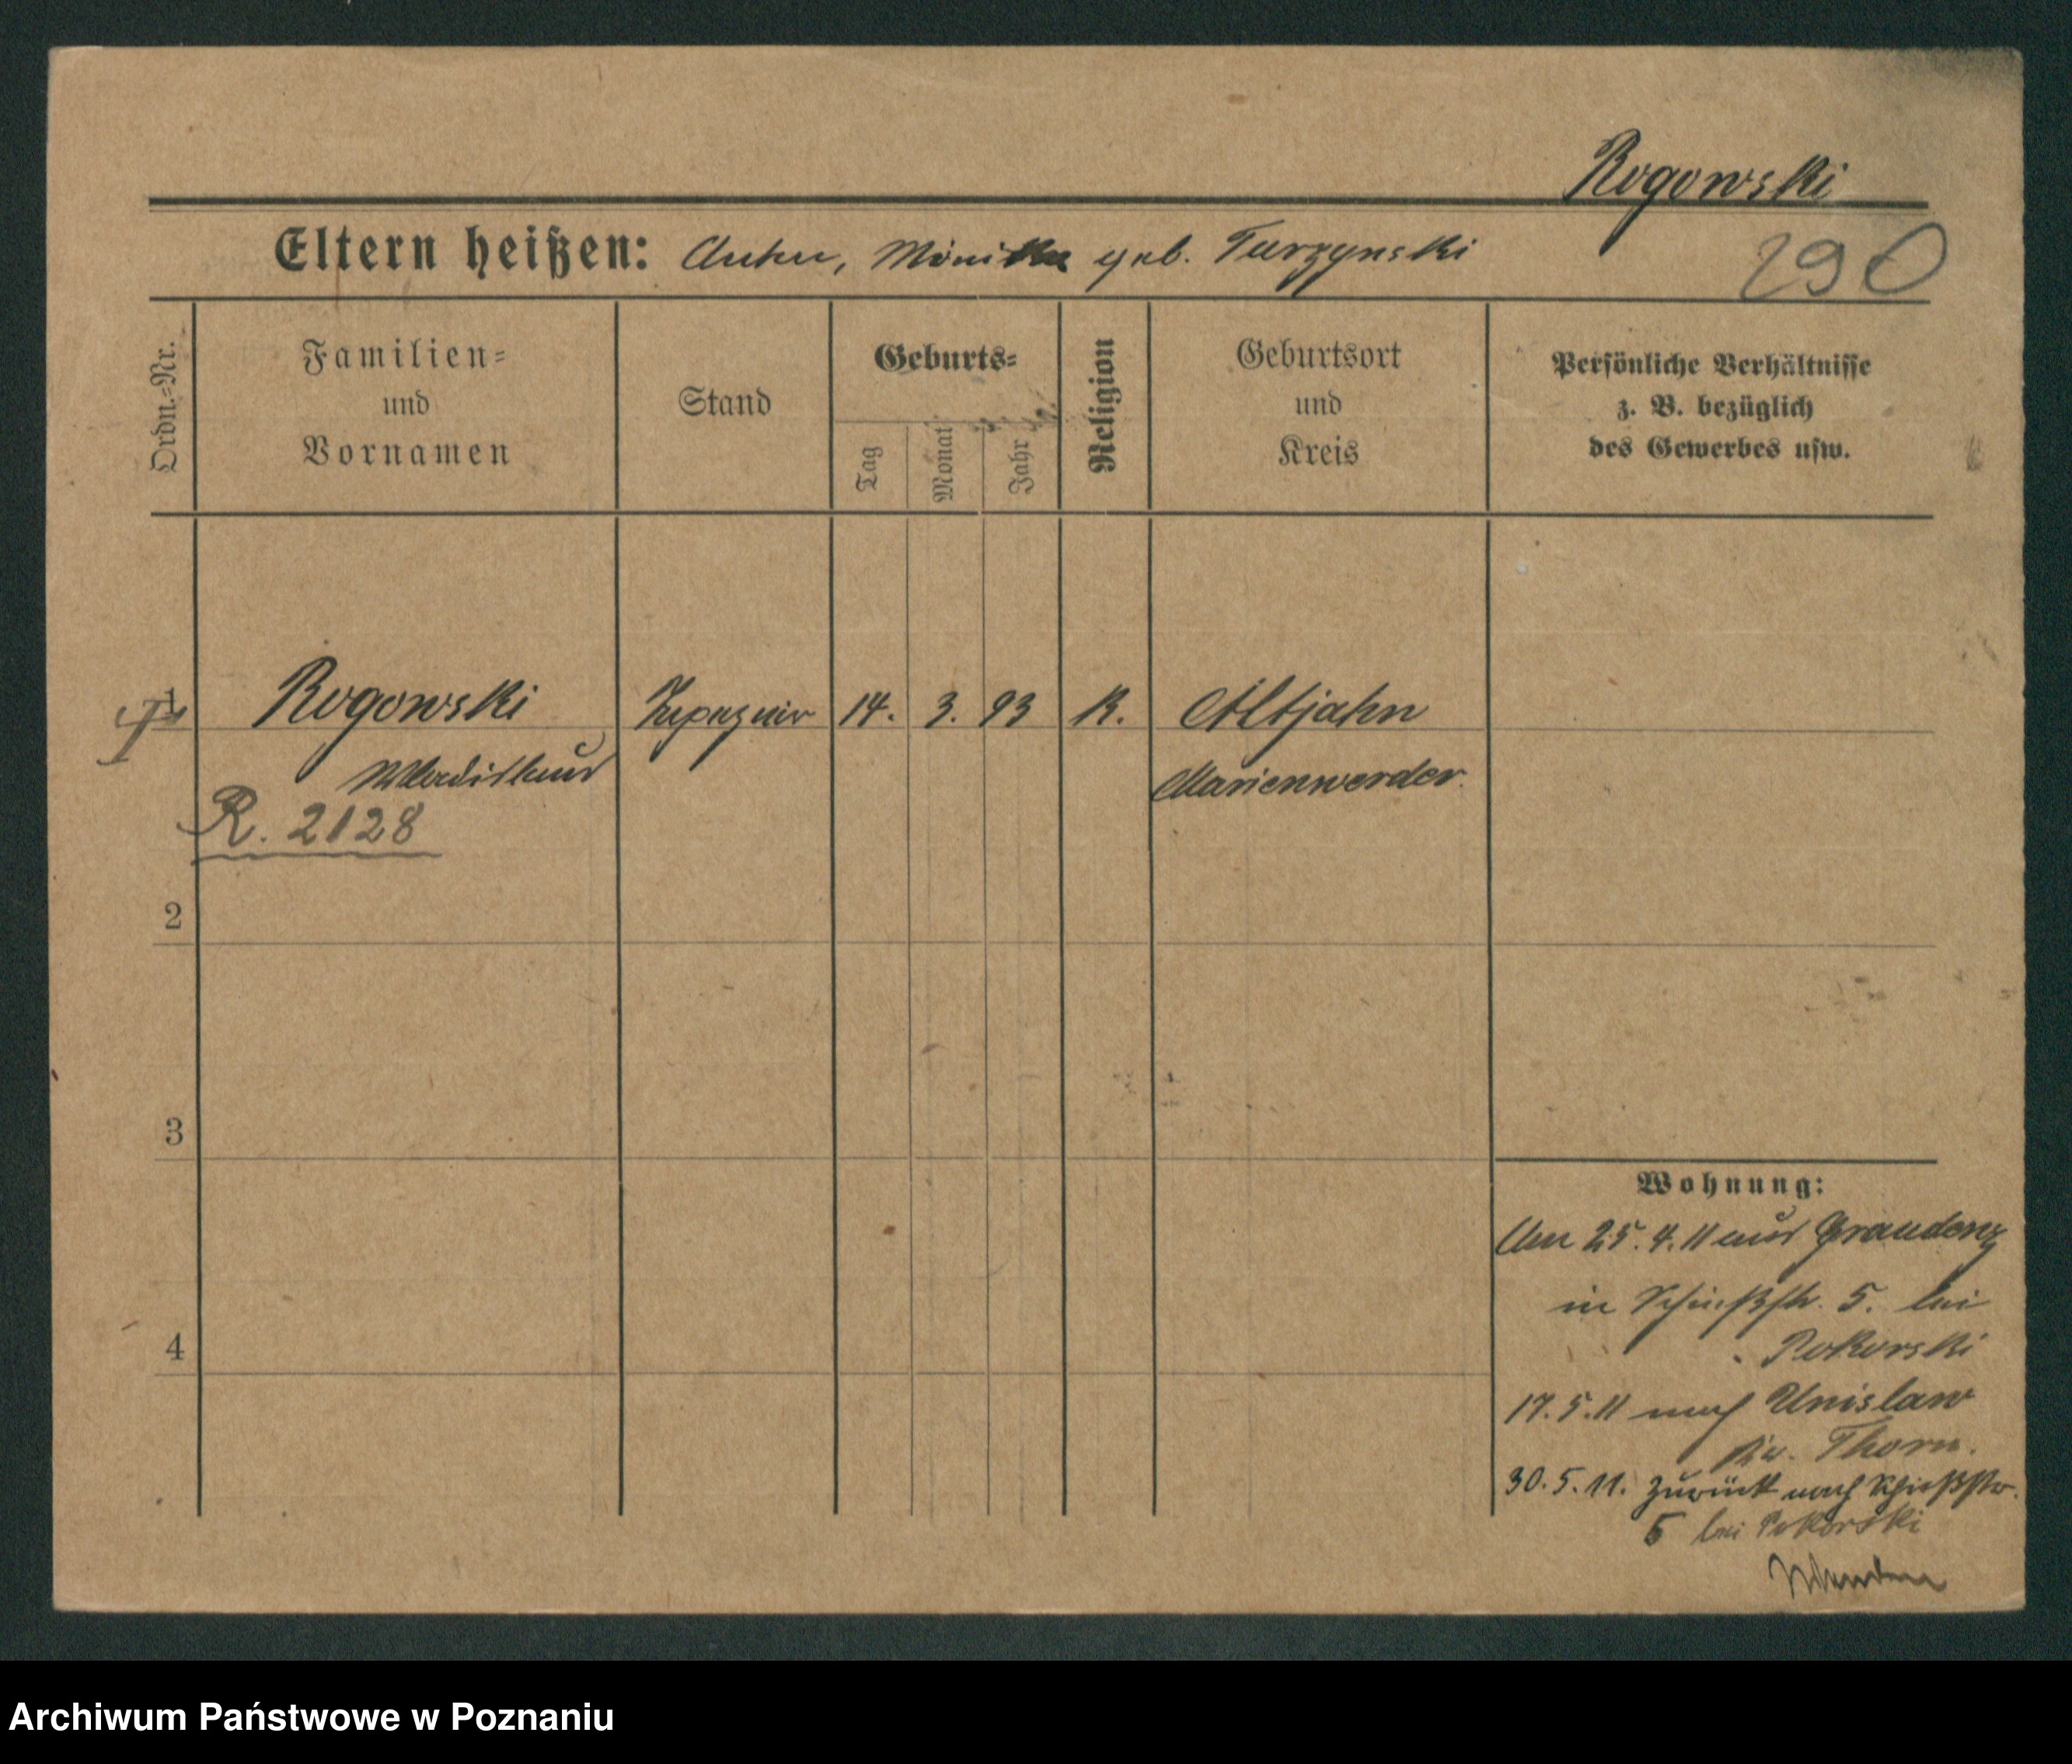 Rogowski
Eltern heißen: Anton, Monika geb. Turzynski
290
Ordn.-Nr.
Familien-
und
Vornamen
Stand
Geburts-
Tag
Monat
Jahr
Religion
Geburtsort
und
Kreis
Persönliche Verhältnisse
z. B. bezüglich
des Gewerbes usw.
1
Rogowski
Tapezier
14.
3.
93
K.
Altjahn
Wladislaus
Marienwerder.
R. 2128
2
3
4
Wohnung:
Am 25.4.11 aus Graudenz
in Schießstr. 5. bei
Pokorski
17.5.11 nach Unislaw
Kr. Thorn.
30.5.11. zurück nach Schießstr.
5 bei Pokorski
Archiwum Państwowe w Poznaniu